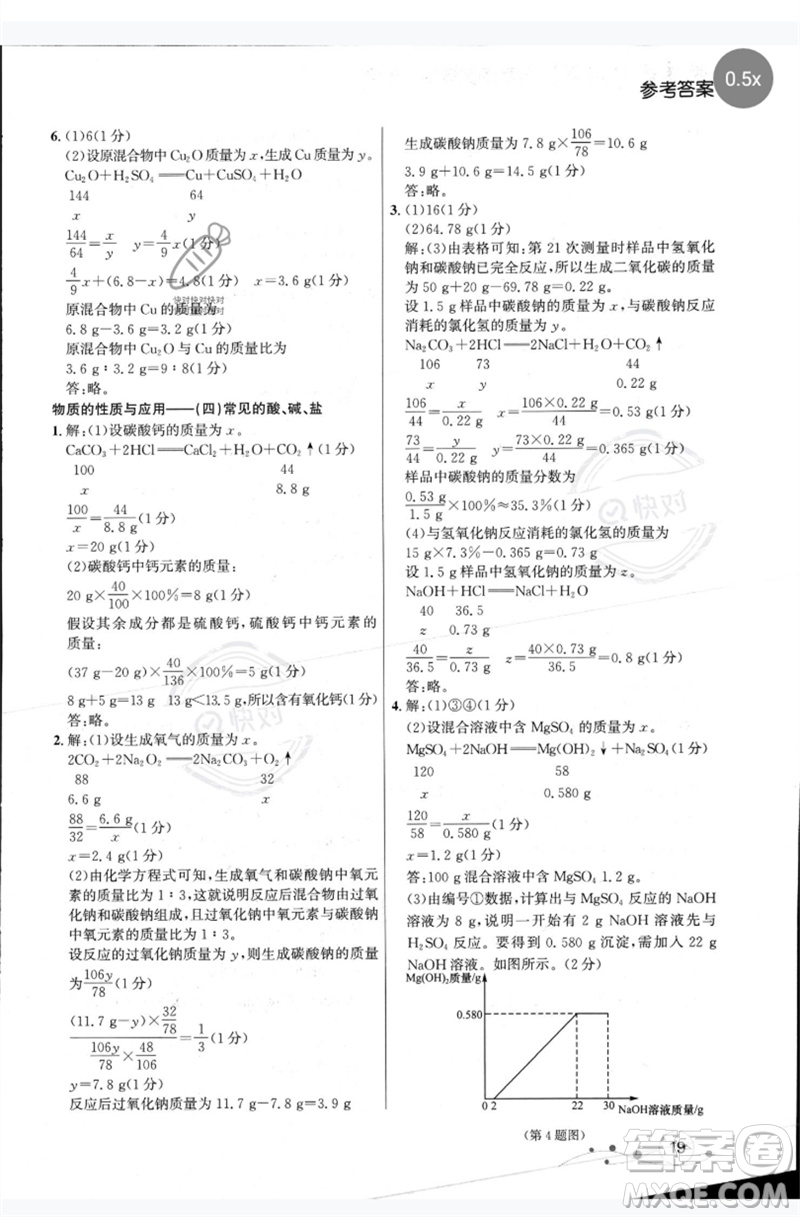 参考答案
0.5x
6. (1)6(1分)
(2)设原混合物中Cu₂O质量为x,生成Cu质量为y。
Cu₂O+H₂SO₄══Cu+CuSO₄+H₂O
144 64
x y
144/64=x/y y=4/9x(1分)
4/9x+(6.8-x)=4.8(1分) x=3.6 g(1分)
原混合物中Cu的质量为
6.8 g-3.6 g=3.2 g(1分)
原混合物中Cu₂O与Cu质量比为
3.6∶3.2 g=9∶8(1分)
答:略。
物质的性质与应用——(四)常见的酸、碱、盐
1. 解:(1)设碳酸钙的质量为x。
CaCO₃+2HCl══CaCl₂+H₂O+CO₂↑(1分)
100 44
x 8.8 g
100/x=44/8.8 g(1分)
x=20 g(1分)
(2)碳酸钙中钙元素的质量:
20 g×40/100×100%=8 g(1分)
假设其余成分都是硫酸钙,硫酸钙中钙元素的
质量:
(37 g-20 g)×40/136×100%=5 g(1分)
8 g+5 g=13 g 13 g<13.5 g,所以含有氧化钙(1分)
答:略。
2. 解:(1)设生成氧气的质量为x。
2CO₂+2Na₂O₂══2Na₂CO₃+O₂↑
88 32
6.6 g x
88/32=6.6 g/x(1分)
x=2.4 g(1分)
(2)由化学方程式可知,生成氧气和碳酸钠中氧元
素的质量比为1∶3,这就说明反应后混合物由过氧
化钠和碳酸钠组成,且过氧化钠中氧元素与碳酸钠
中氧元素的质量比为1∶3。
设反应的过氧化钠质量为y,则生成碳酸钠的质量
为106y/78(1分)
(11.7 g-y)×32/78 / (106y/78×48/106)=1/3(1分)
y=7.8 g(1分)
反应后过氧化钠质量为11.7 g-7.8 g=3.9 g
生成碳酸钠质量为7.8 g×106/78=10.6 g
3.9 g+10.6 g=14.5 g(1分)
答:略。
3. (1)16(1分)
(2)64.78 g(1分)
解:(3)由表格可知:第21次测量时样品中氢氧化
钠和碳酸钠已完全反应,所以生成二氧化碳的质量
为50 g+20 g-69.78 g=0.22 g。
设1.5 g样品中碳酸钠的质量为x,与碳酸钠反应
消耗的氯化氢的质量为y。
Na₂CO₃+2HCl══2NaCl+H₂O+CO₂↑
106 73 44
x y 0.22 g
106/44=x/0.22 g x=106×0.22 g/44=0.53 g(1分)
73/44=y/0.22 g y=73×0.22 g/44=0.365 g(1分)
样品中碳酸钠的质量分数为
0.53 g/1.5 g×100%≈35.3%(1分)
(4)与氢氧化钠反应消耗的氯化氢的质量为
15 g×7.3%-0.365 g=0.73 g
设1.5 g样品中氢氧化钠的质量为z。
NaOH+HCl══NaCl+H₂O
40 36.5
z 0.73 g
40/36.5=z/0.73 g z=40×0.73 g/36.5=0.8 g(1分)
4. 解:(1)③④(1分)
(2)设混合溶液中含MgSO₄的质量为x。
MgSO₄+2NaOH══Mg(OH)₂↓+Na₂SO₄(1分)
120 58
x 0.580 g
120/58=x/0.580 g(1分)
x=1.2 g(1分)
答:100 g混合溶液中含MgSO₄ 1.2 g。
(3)由编号①数据,计算出与MgSO₄反应的NaOH
溶液为8 g,说明一开始有2 g NaOH溶液先与
H₂SO₄反应。要得到0.580 g沉淀,需加入22 g
NaOH溶液。如图所示。(2分)
Mg(OH)₂质量/g
0.580
0 2 22 30 NaOH溶液质量/g
(第4题图)
19
快对快对快对
快对
快对
答案圈
MXQE.COM